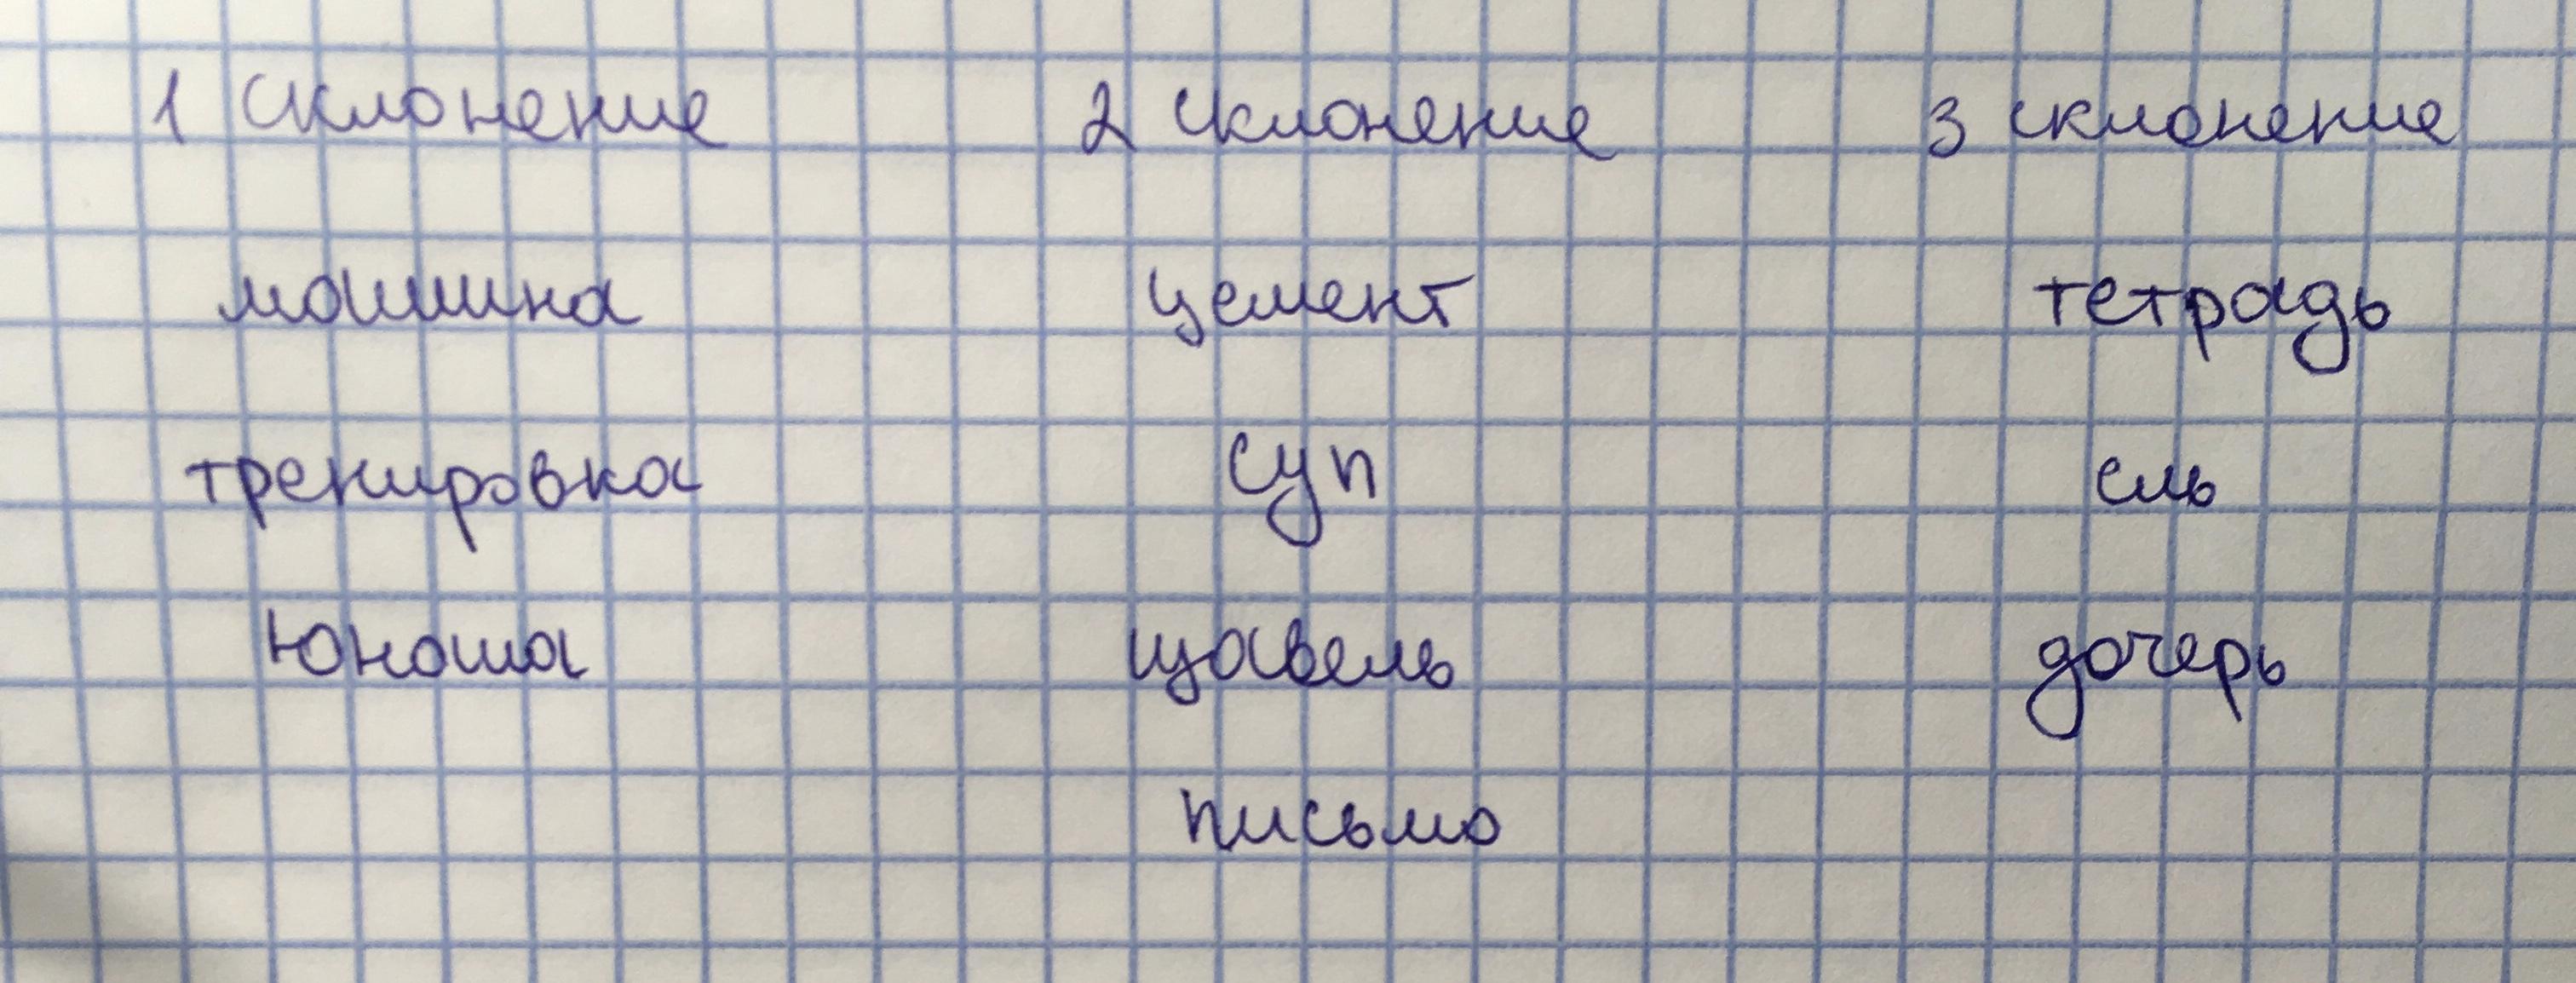 1 склонение 2 склонение 3 склонение
машина цемент тетрадь
тренировка суп ель
юноша щавель дочерь
письмо